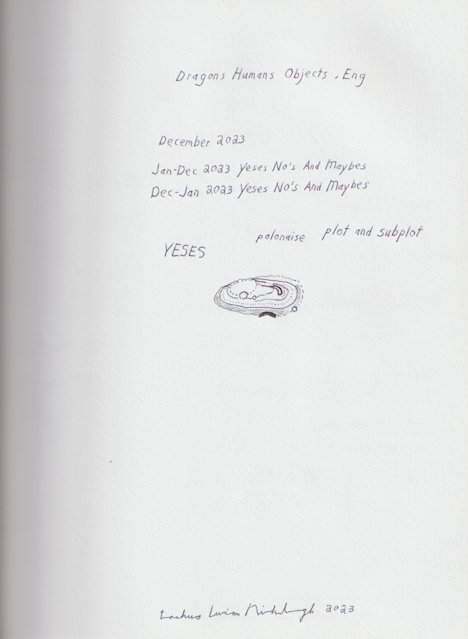 Dragons Humans Objects . Eng
December 2023
Jan-Dec 2023 Yeses No's And Maybes
Dec-Jan 2023 Yeses No's And Maybes
polonaise plot and subplot
YESES
2023